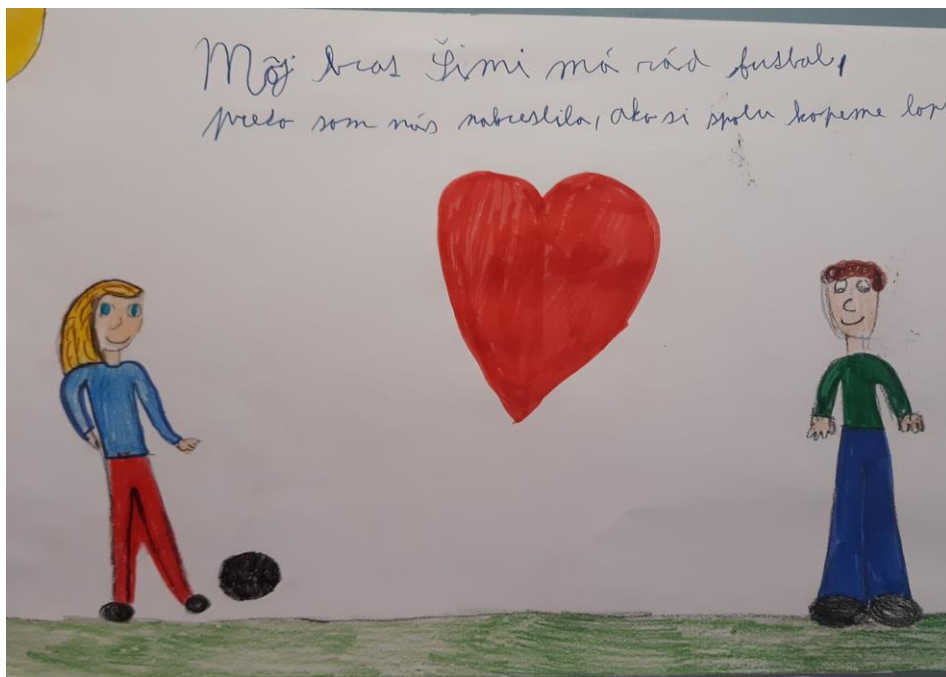 Môj brat Šimi má rád futbal,
preto som nás nakreslila, ako si spolu kopeme lop